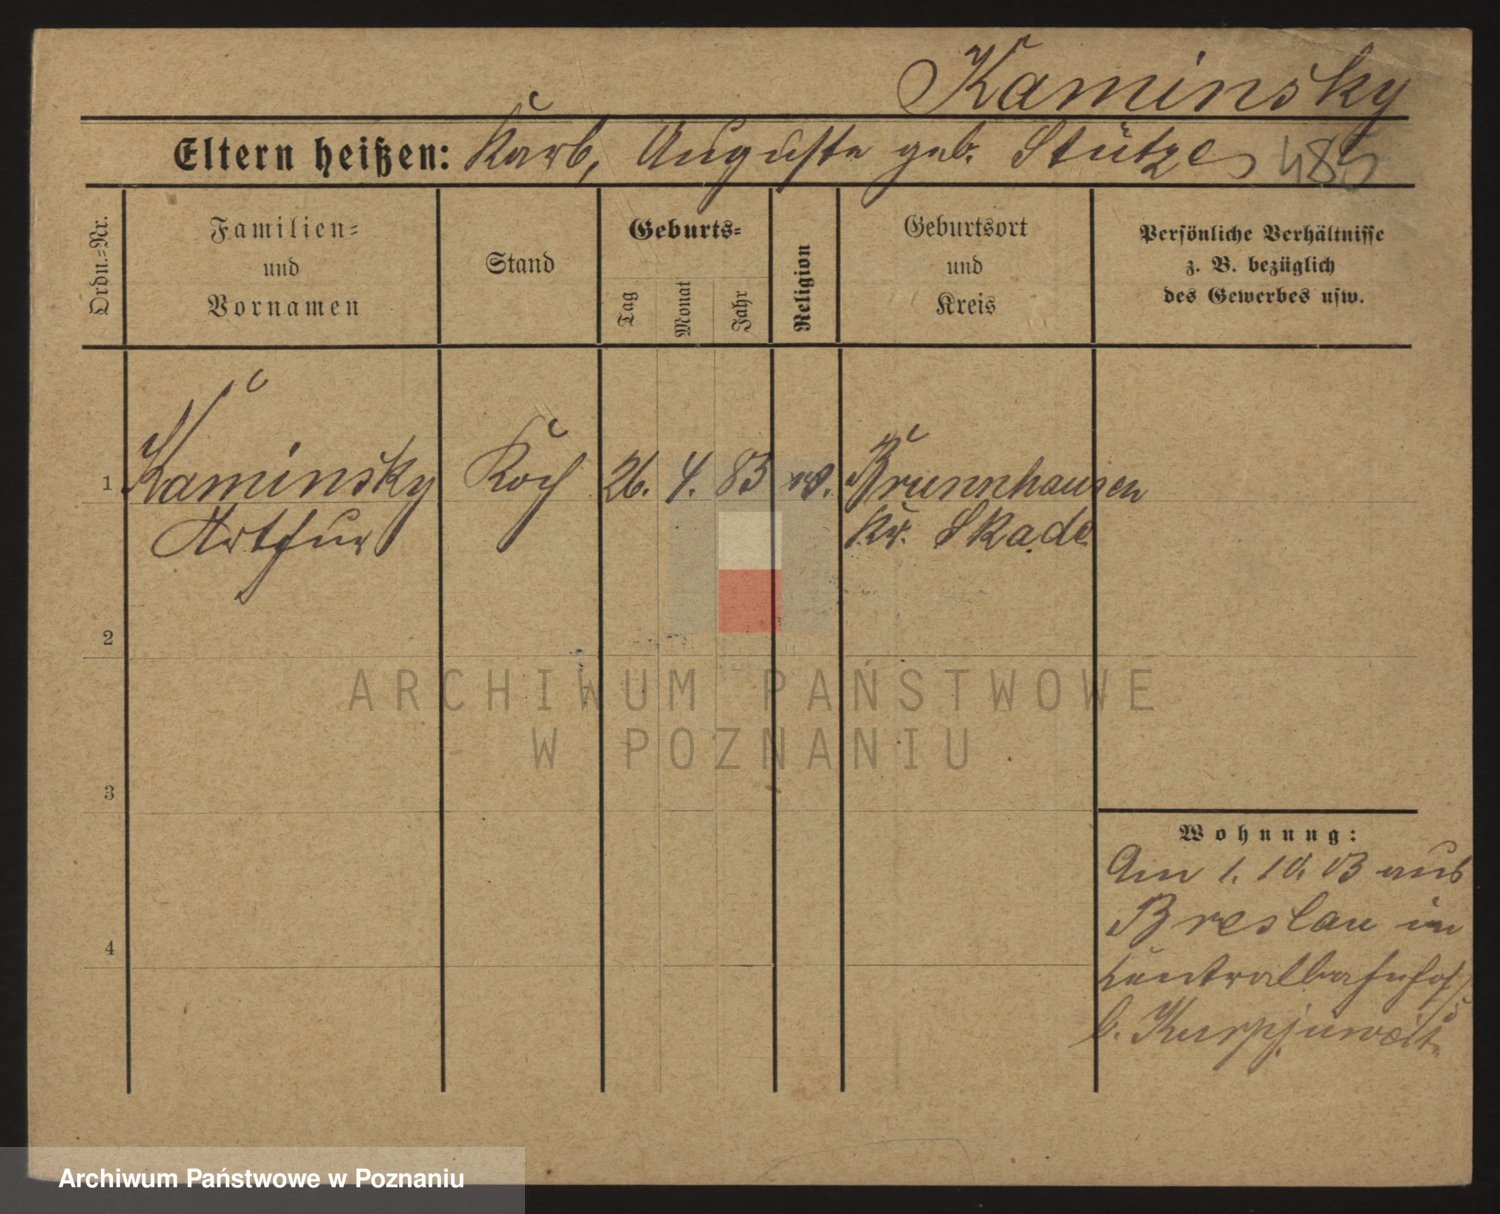 Kaminsky
Eltern heißen: Karl, Auguste geb. Stütze 485
Ordn.-Nr.
Familien-
und
Vornamen
Stand
Geburts-
Tag
Monat
Jahr
Religion
Geburtsort
und
Kreis
Persönliche Verhältnisse
z. B. bezüglich
des Gewerbes usw.
1 Kaminsky Koch 26. 4. 83 Brunnhausen
Arthur Kr.
2
ARCHIWUM PAŃSTWOWE
W POZNANIU
3
Wohnung:
Am 1. 10. 03 aus
Breslau in
4
Centralbahnhof
b. Kurpjuweit
Archiwum Państwowe w Poznaniu